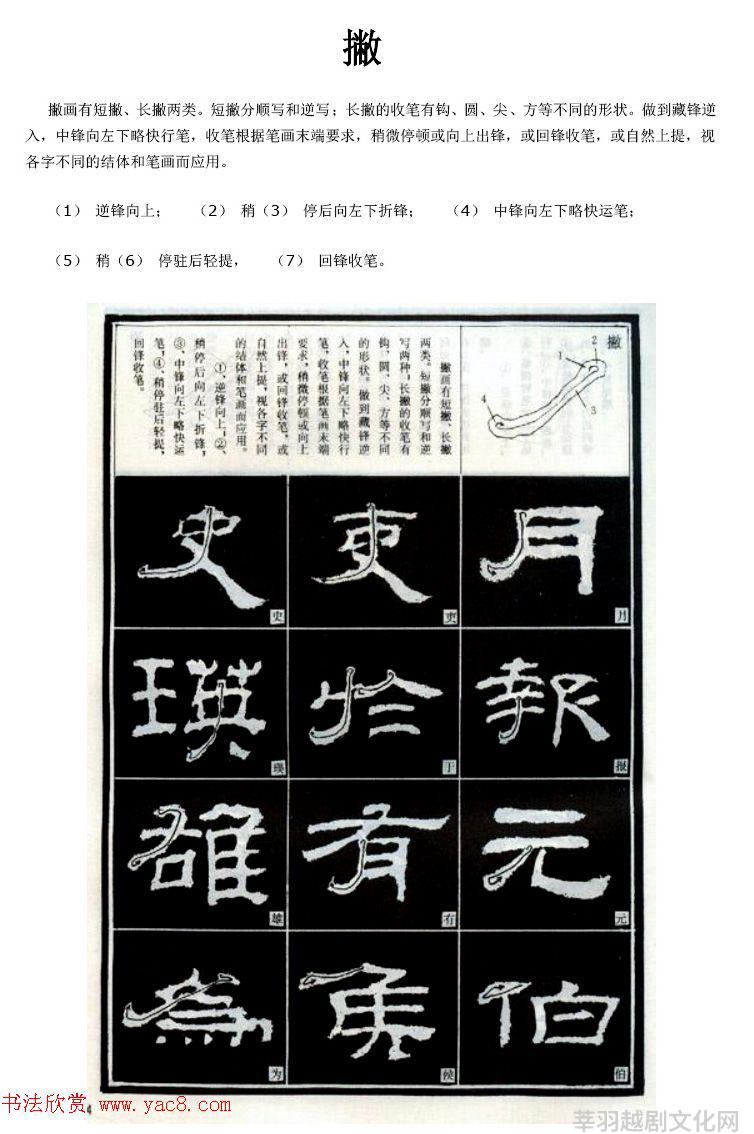 撇
撇画有短撇、长撇两类。短撇分顺写和逆写；长撇的收笔有钩、圆、尖、方等不同的形状。做到藏锋逆
入，中锋向左下略快行笔，收笔根据笔画末端要求，稍微停顿或向上出锋，或回锋收笔，或自然上提，视
各字不同的结体和笔画而应用。
（1） 逆锋向上； （2） 稍（3） 停后向左下折锋； （4） 中锋向左下略快运笔；
（5） 稍（6） 停驻后轻提， （7） 回锋收笔。
撇
1
2
3
4
撇画有短撇、长撇
两类。短撇分顺写和逆
写两种；长撇的收笔有
钩、圆、尖、方等不同
的形状。做到藏锋逆
入，中锋向左下略快行
笔，收笔根据笔画末端
要求，稍微停顿或向上
出锋，或回锋收笔，或
自然上提，视各字不同
的结体和笔画而应用。
①逆锋向上；②、
稍停后向左下折锋；
③、中锋向左下略快运
笔；④、稍停驻后轻提，
回锋收笔。
月 月
吏 吏
史 史
報 报
於 于
瑛 瑛
元 元
有 有
雄 雄
伯 伯
侯 侯
為 为
4
书法欣赏 www.yac8.com
莘羽越剧文化网